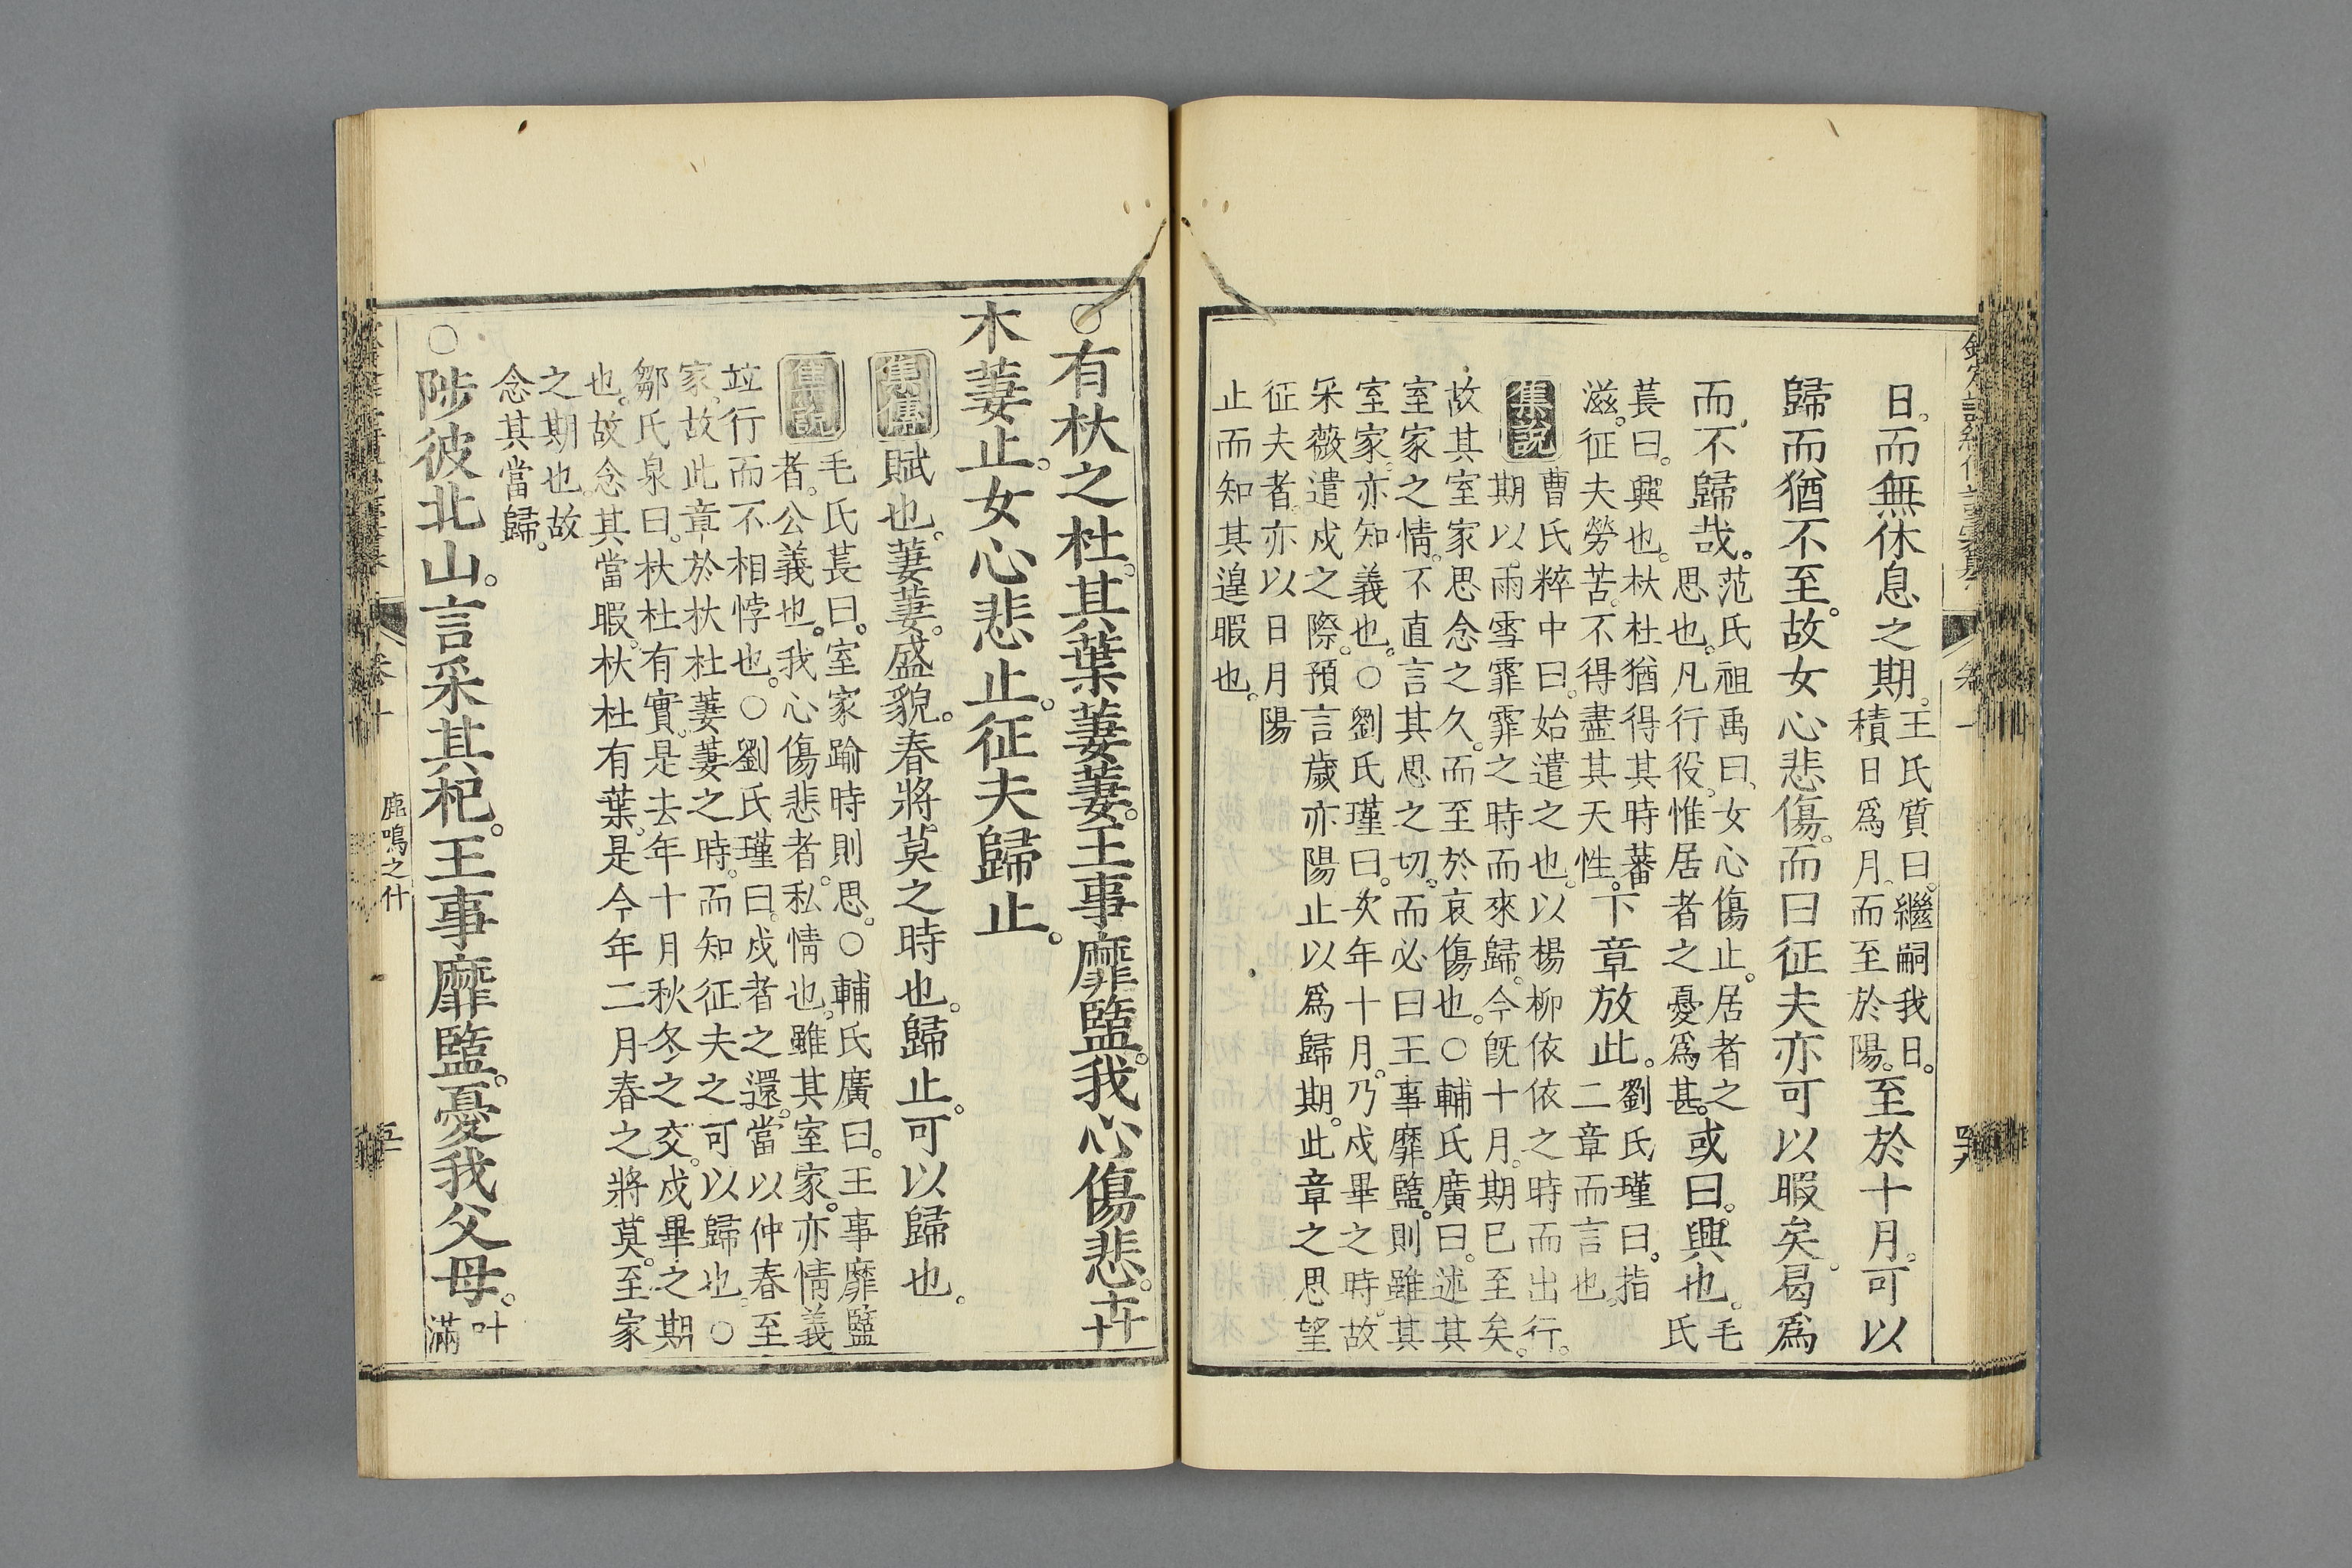 日。而無休息之期。王氏質曰。繼嗣我日。
積日爲月、而至於陽。至於十月。可以
歸而猶不至。故女心悲傷。而曰征夫亦可以暇矣。曷爲
而不歸哉。范氏祖禹曰、女心傷止。居者之
思也。凡行役、惟居者之憂爲甚。或曰。興也。毛
氏
萇曰。興也。杕杜猶得其時蕃
滋。征夫勞苦。不得盡其天性。下章放此。劉氏瑾曰。指
二章而言也。
集說
曹氏粹中曰。始遣之也。以楊柳依依之時而出行。
期以雨雪霏霏之時而來歸。今旣十月。期已至矣。
故其室家思念之久。而至於哀傷也。○輔氏廣曰。述其
室家之情。不直言其思之切。而必曰王事靡盬。則雖其
室家。亦知義也。○劉氏瑾曰。次年十月。乃戍畢之時。故
采薇遣戍之際。預言歲亦陽止以爲歸期。此章之思望
征夫者。亦以日月陽
止而知其遑暇也。
○有杕之杜。其葉萋萋。王事靡盬。我心傷悲。卉
木萋止。女心悲止。征夫歸止。
集傳
賦也。萋萋。盛貌。春將莫之時也。歸止。可以歸也。
集說
毛氏萇曰。室家踰時則思。○輔氏廣曰。王事靡盬
者。公義也。我心傷悲者。私情也。雖其室家。亦情義
竝行而不相悖也。○劉氏瑾曰。戍者之還。當以仲春至
家。故此章於杕杜萋萋之時。而知征夫之可以歸也。○
鄒氏泉曰。杕杜有實。是去年十月秋冬之交。戍畢之期
也。故念其當暇。杕杜有葉。是今年二月春之將莫。至家
之期也。故
念其當歸。
○陟彼北山。言采其杞。王事靡盬。憂我父母。叶
滿
鹿鳴之什